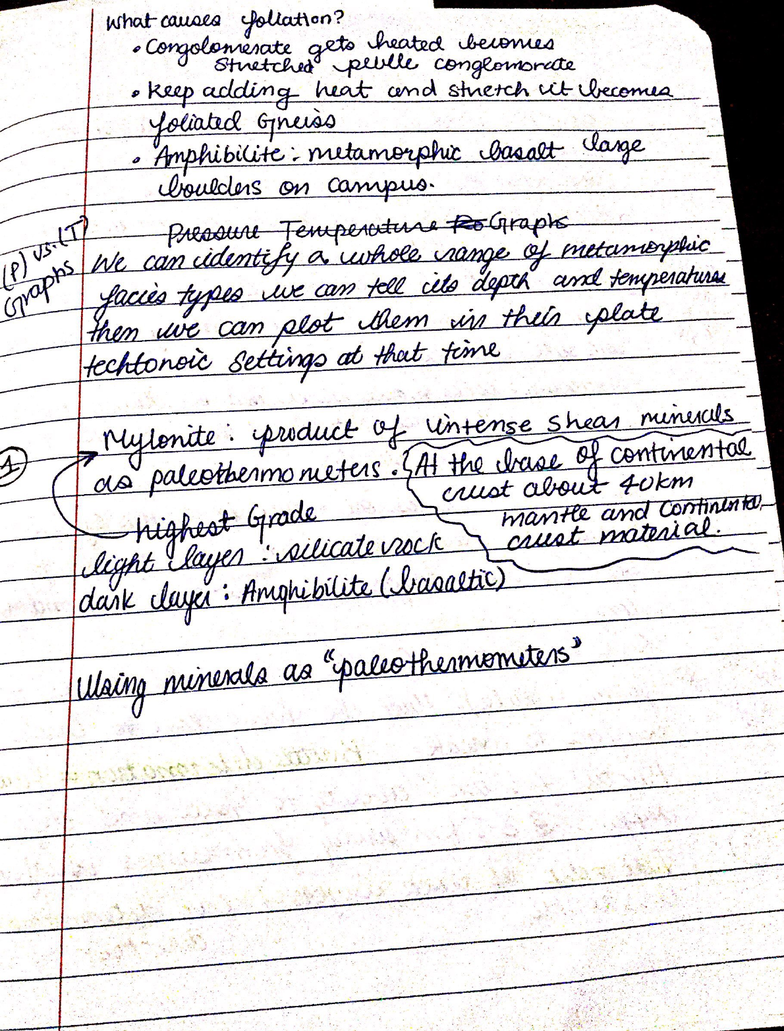 What causes foliation?
• Congolomerate gets heated becomes
Stretched pebble conglomorate
• Keep adding heat and stretch it becomes
foliated Gneiss
• Amphibilite : metamorphic basalt large
boulders on campus.
Pressure Temperature Graphs
(P) vs. (T)
Graphs
We can identify a whole range of metamorphic
facies types we can tell its depth and temperatures
then we can plot them in their plate
techtonoic settings at that time
1
Mylonite : product of intense shear minerals
as paleothermometers. At the base of continental
crust about 40km
mantle and continental
crust material.
highest Grade
light layer : silicate rock
dark layer : Amphibilite (basaltic)
Using minerals as "paleothermometers"